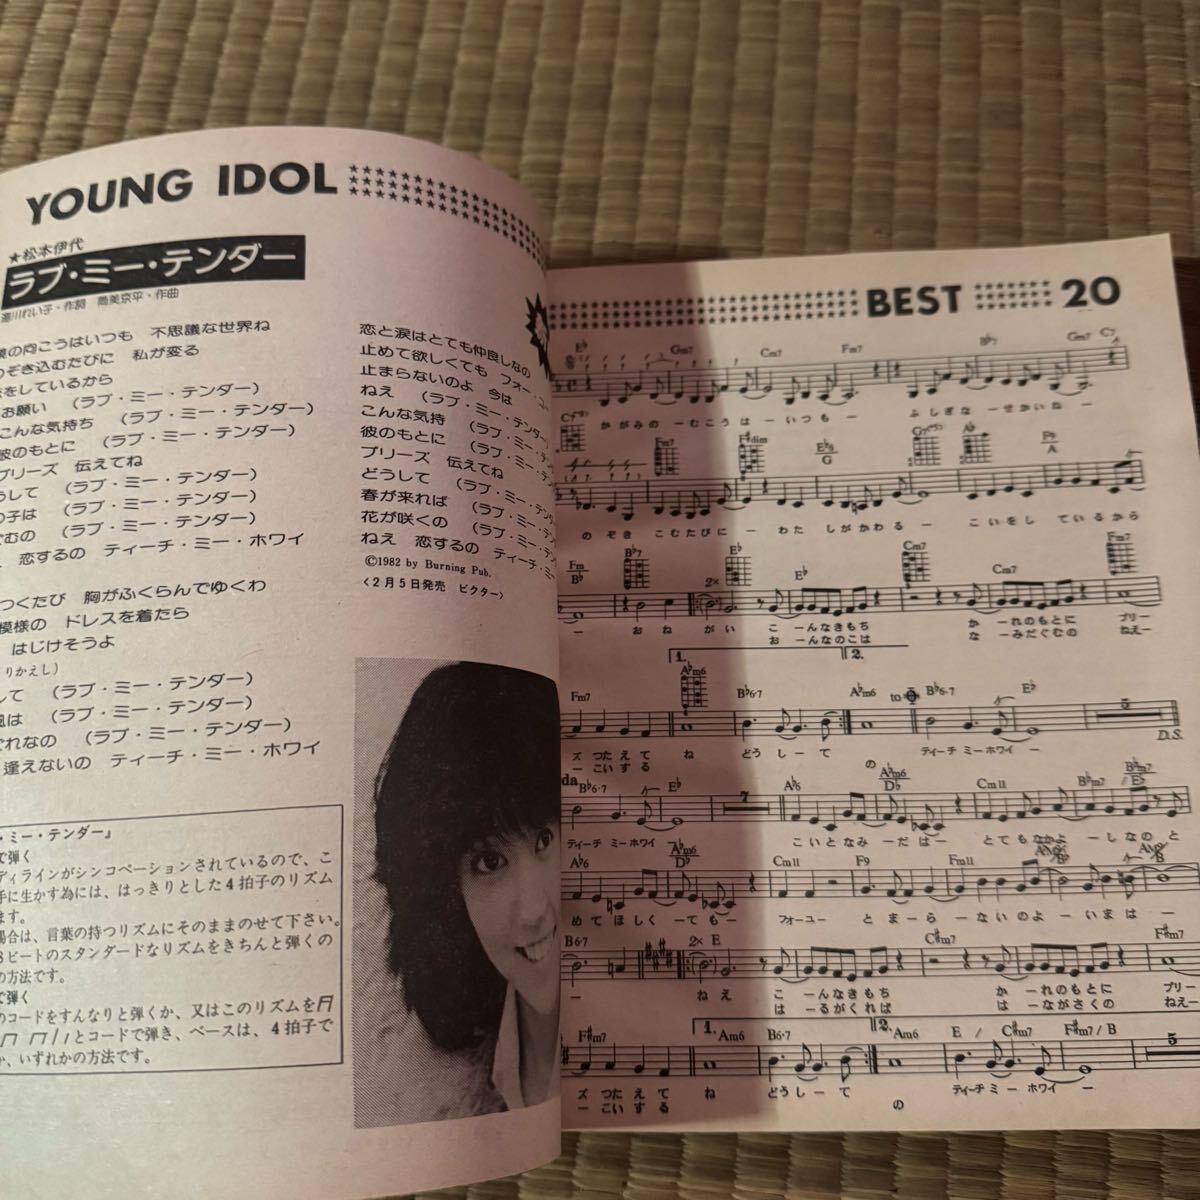 YOUNG IDOL
★松本伊代
ラブ・ミー・テンダー
湯川れい子・作詞 筒美京平・作曲
の向こうはいつも 不思議な世界ね
のぞき込むたびに 私が変る
をしているから
お願い (ラブ・ミー・テンダー)
こんな気持ち (ラブ・ミー・テンダー)
彼のもとに (ラブ・ミー・テンダー)
プリーズ 伝えてね
うして (ラブ・ミー・テンダー)
の子は (ラブ・ミー・テンダー)
ぐむの (ラブ・ミー・テンダー)
恋するの ティーチ・ミー・ホワイ
つくたび 胸がふくらんでゆくわ
模様の ドレスを着たら
はじけそうよ
りかえし)
して (ラブ・ミー・テンダー)
風は (ラブ・ミー・テンダー)
ぐれなの (ラブ・ミー・テンダー)
逢えないの ティーチ・ミー・ホワイ
恋と涙はとても仲良しなの
止めて欲しくても フォー・ユー
止まらないのよ 今は
ねえ (ラブ・ミー・テンダー
こんな気持 (ラブ・ミー・テン
彼のもとに (ラブ・ミー・テン
プリーズ 伝えてね
どうして (ラブ・ミー・テン
春が来れば (ラブ・ミー・テンダ
花が咲くの (ラブ・ミー・テン
ねえ 恋するの ティーチ・ミ
©1982 by Burning Pub.
<2月5日発売 ビクター>
・ミー・テンダー』
で弾く
ディラインがシンコペーションされているので、こ
手に生かす為には、はっきりとした4拍子のリズム
ます。
場合は、言葉の持つリズムにそのままのせて下さい。
8ビートのスタンダードなリズムをきちんと弾くの
の方法です。
で弾く
のコードをすんなりと弾くか、又はこのリズムを
とコードで弾き、ベースは、4拍子で
か、いずれかの方法です。
BEST 20
E♭ Gm7 Cm7 Fm7 B♭7 Gm7 C7
かがみの ー むこうは ー いつも ー ふしぎな ー せかいね ー
Fm7 F♯dim E♭6/G A♭ F9/A
の ぞき こむたびに ー わた しがかわる ー こいをし ているから
Fm/B♭ B♭7 E♭ 2× E♭ Cm7 Cm7 Fm7
ー おね がい こ ーんなきもち か ーれのもとに プリー
お ーんなのこは な ーみだぐむの ねえー
1. 2.
Fm7 A♭m6 B♭6·7 A♭m6 to B♭6·7 E♭ 5
D.S.
ズ つたえて ね どう しー て の ティーチ ミーホワイ ー
ー こいする
B♭6·7 E♭ 7 A♭6 A♭m6/D♭ Cm11 B♭m7 B♭m7/E♭
ティーチ ミーホワイ ー こいとなみ ーだは ー とてもなかよ ーしなの と
A♭6 A♭m6/D♭ Cm11 F9 Fm11
めて ほしく ーても ー フォーユー と ま ー ら ー ないの よ ー いま は ー
B6·7 2× E C♯m7 F♯m7
ー ねえ こ ーんなきもち か ーれのもとに プリー
は ーるがくれば は ーながさくの ねえー
1. 2.
F♯m7 Am6 B6·7 Am6 E / C♯m7 F♯m7 / B 5
ズ つたえて ね どうしー て の ティーチ ミー ホワイ ー
ー こいする